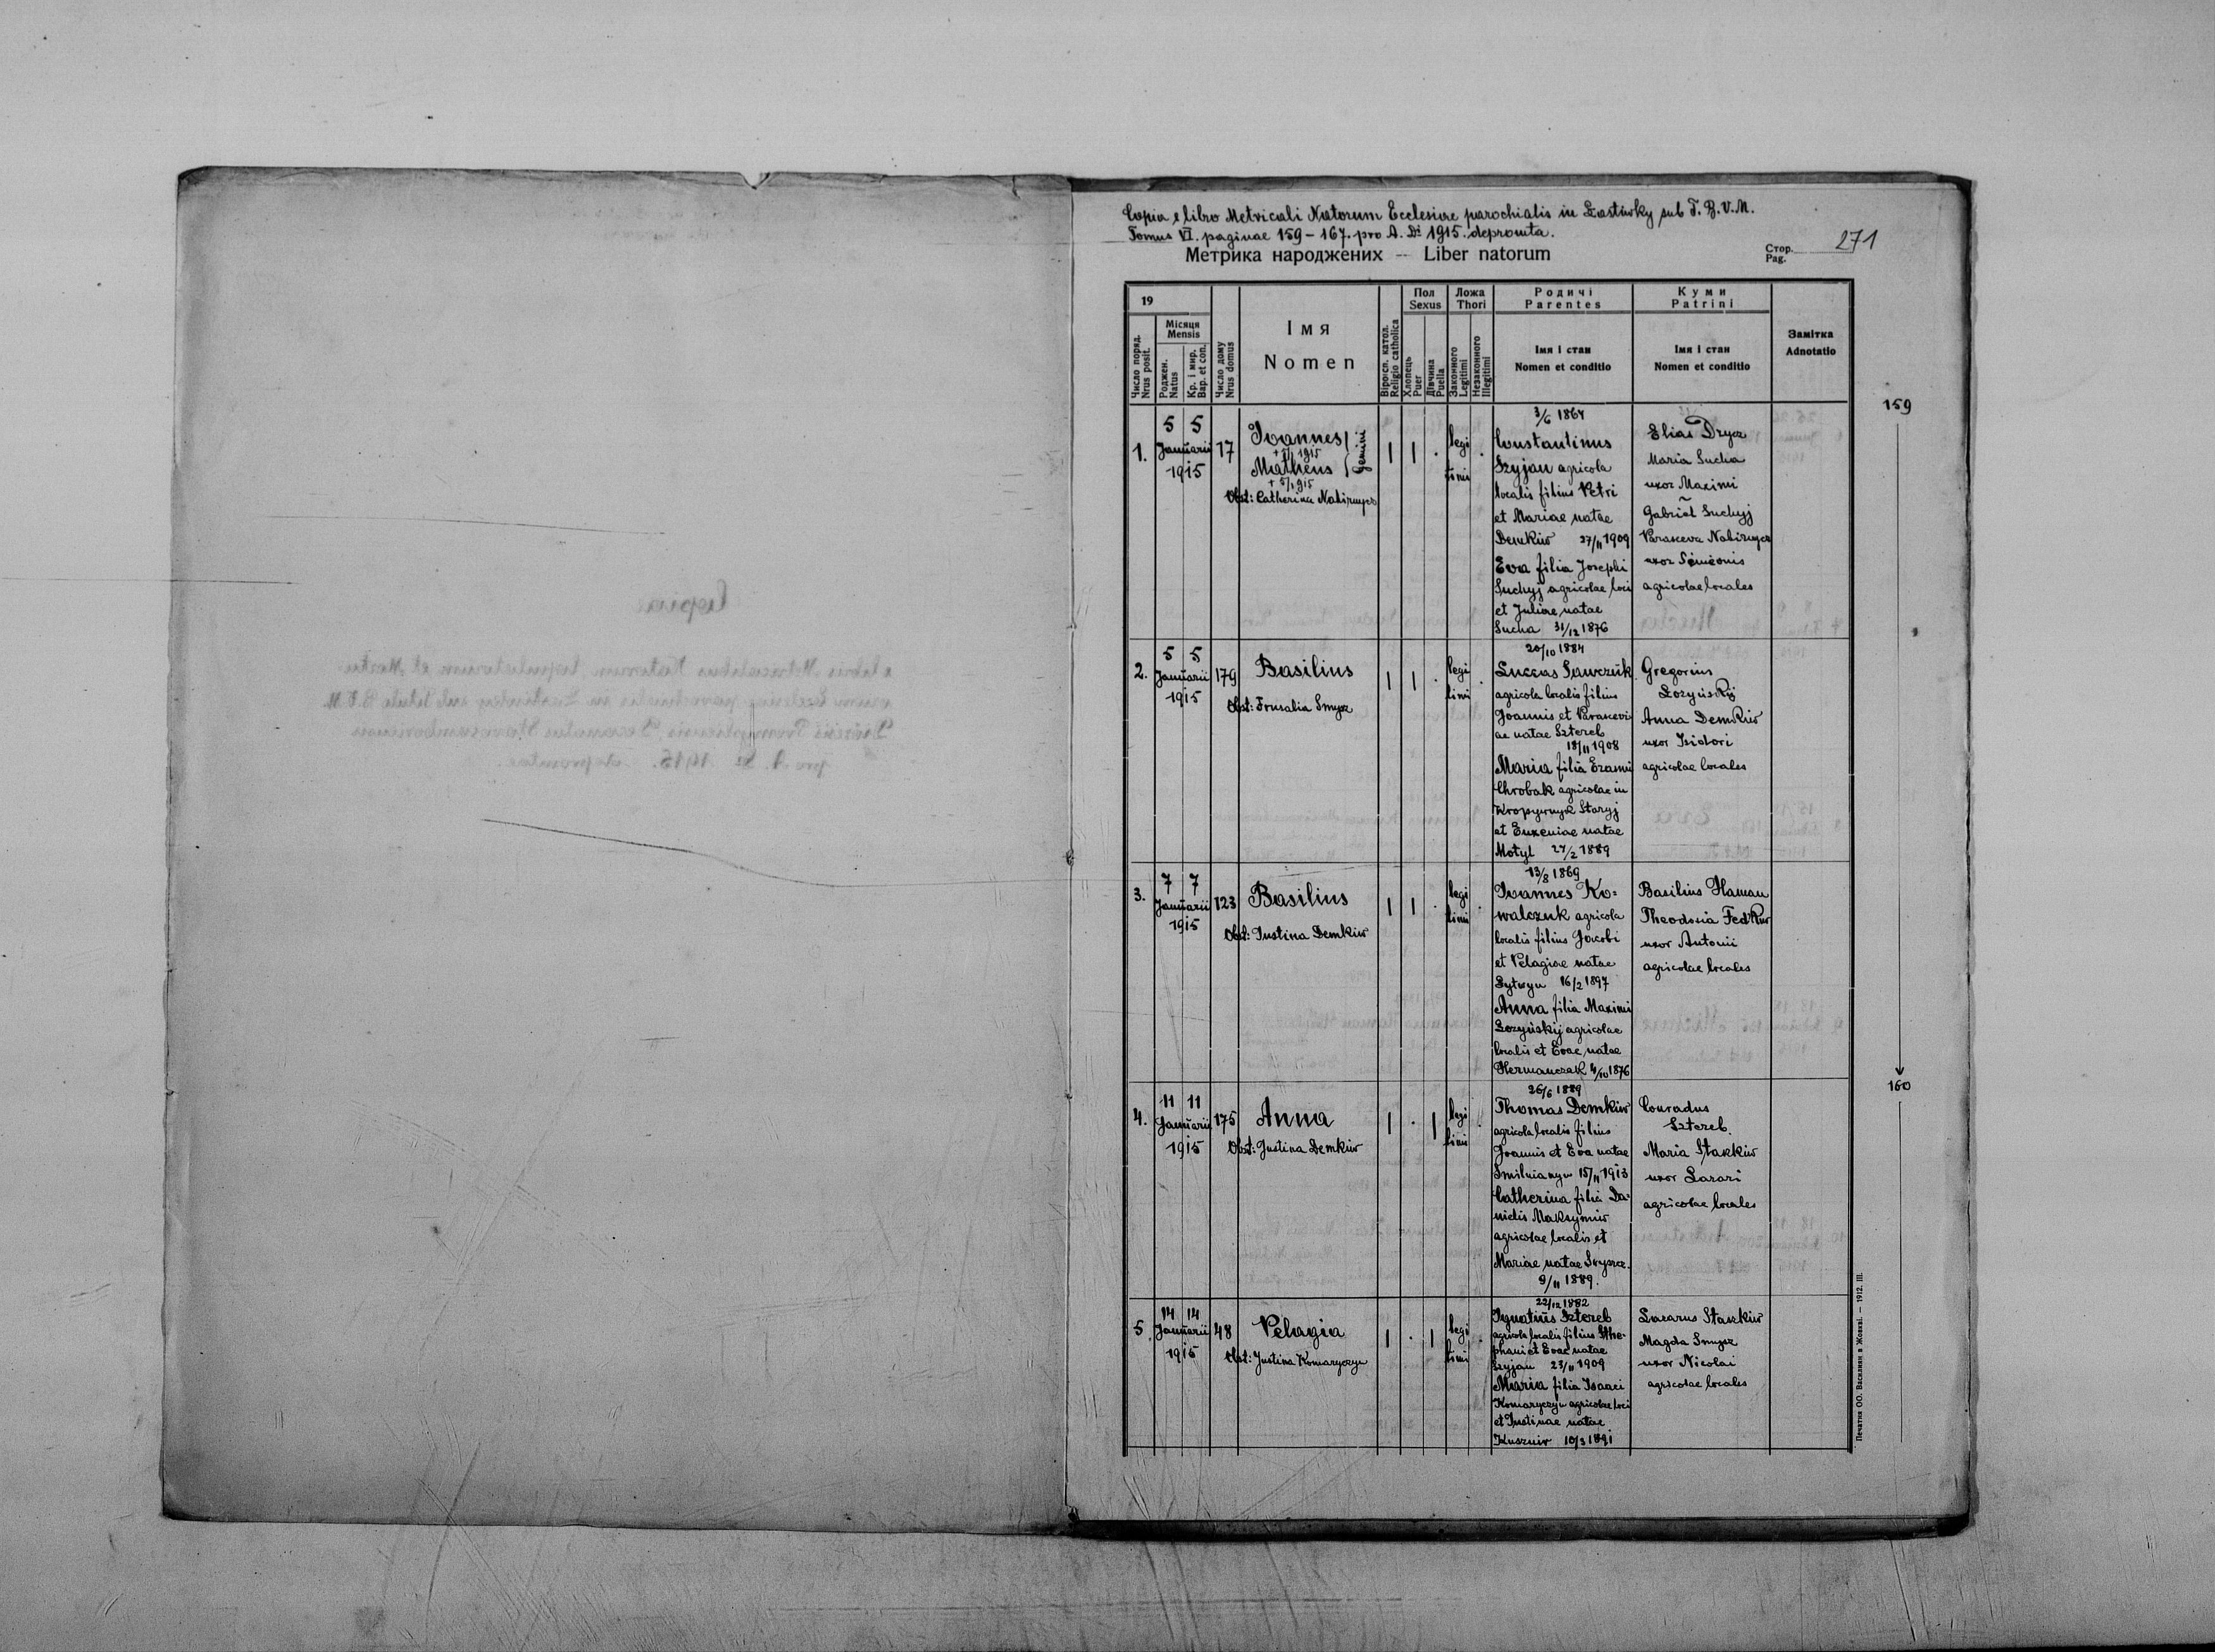 Copia e libro Metricali Natorum Ecclesiae parochialis in Łastiwky sub T. B. V. M.
Tomus VI. paginae 159 – 167. pro A. Di 1915. depromta.
Метрика народжених -- Liber natorum
Стор.
Pag.
271
19
Число поряд.
Nrus posit.
Місяця
Mensis
Роджен.
Natus
Кр. і мир.
Bap. et con.
Число дому
Nrus domus
Імя
Nomen
Віроісп. катол.
Religio catholica
Пол
Sexus
Хлопець
Puer
Дівчина
Puella
Ложа
Thori
Законного
Legitimi
Незаконного
Illegitimi
Родичі
Parentes
Імя і стан
Nomen et conditio
Куми
Patrini
Імя і стан
Nomen et conditio
Замітка
Adnotatio
159
1.
5 5
Januarii
1915
17
Ioannes
+ 5/1 1915
Matheus
+ 5/1 915
Gemini
Obst: Catherina Nahirnycz
legi
timi
3/6 1864
Constantinus
Szyjan agricola
localis filius Petri
et Mariae natae
Demkiw 27/11 1909
Eva filia Josephi
Suchyj agricolae loci
et Juliae natae
Sucha 31/12 1876
Elias Drycz
Maria Sucha
uxor Maximi
Gabriel Suchyj
Parasceva Nahirnycz
uxor Simeonis
agricolae locales
2.
5 5
Januarii
1915
179
Basilius
Obst: Frusalia Smycz
legi
timi
20/10 1884
Luccas Sawczuk
agricola localis filius
Joannis et Parascevi
ae natae Sztereb
18/11 1908
Maria filia Erasmi
Chrobak agricolae in
Kropywnyk Staryj
et Euxeniae natae
Motyl 27/2 1889
Gregorius
Łozyńskyj
Anna Demkiw
uxor Isidori
agricolae locales
3.
7 7
Januarii
1915
123
Basilius
Obst: Justina Demkiw
legi
timi
13/8 1869
Ioannes Ko=
walczuk agricola
localis filius Jacobi
et Pelagiae natae
Łytwyn 16/2 1897
Anna filia Maximi
Łozyńskij agricolae
localis et Evae, natae
Hermanczak 4/10 1876
Basilius Haman
Theodosia Fedkiw
uxor Antonii
agricolae locales
160
4.
11 11
Januarii
1915
175
Anna
Obst: Justina Demkiw
legi
timi
26/6 1889
Thomas Demkiw
agricola localis filius
Joannis et Eva natae
Smilnianyn 15/11 1913
Catherina filia Da=
nielis Maksymiw
agricolae localis et
Mariae natae
9/11 1889.
Conradus
Sztereb.
Maria Staskiw
uxor Lazari
agricolae locales
5.
14 14
Januarii
1915
48
Pelagia
Obst: Justina Komaryczyn
legi
timi
22/12 1882
Ignatius Sztereb
agricola localis filius Sthe=
phani et Evae natae
Szyjan 23/11 1909
Maria filia Isaaci
Komaryczyn agricolae loci
et Justinae natae
Kuszniw 10/3 1891
Lazarus Staskiw
Magda Smycz
uxor Nicolai
agricolae locales
Печатня ОО. Василиян в Жовкві. — 1912. III.